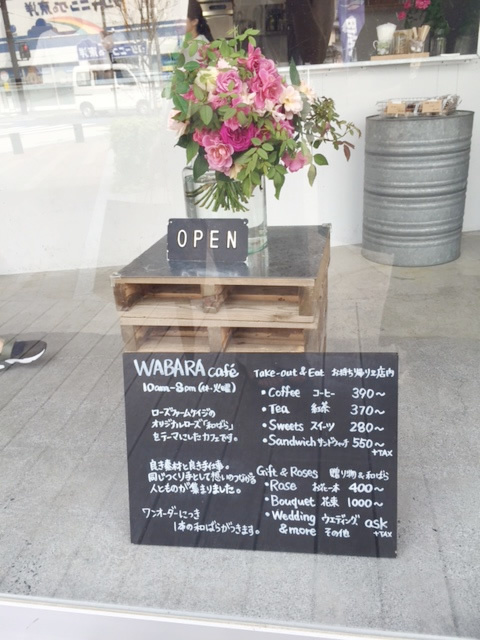 OPEN
WABARA café
10am-8pm (休・火曜)
ローズファームケイジの
オリジナルローズ「和ばら」
をテーマにしたカフェです。
良き素材と良き手仕事。
同じつくり手として想いのつながる
人とものが集まりました。
ワンオーダーにつき
1本の和ばらがつきます。
Take-out & Eat お持ち帰り&店内
・Coffee コーヒー 390～
・Tea 紅茶 370～
・Sweets スイーツ 280～
・Sandwich サンドウィッチ 550～
+TAX
Gift & Roses 贈り物&和ばら
・Rose お花一本 400～
・Bouquet 花束 1000～
・Wedding ウエディング ask
& more その他 +TAX